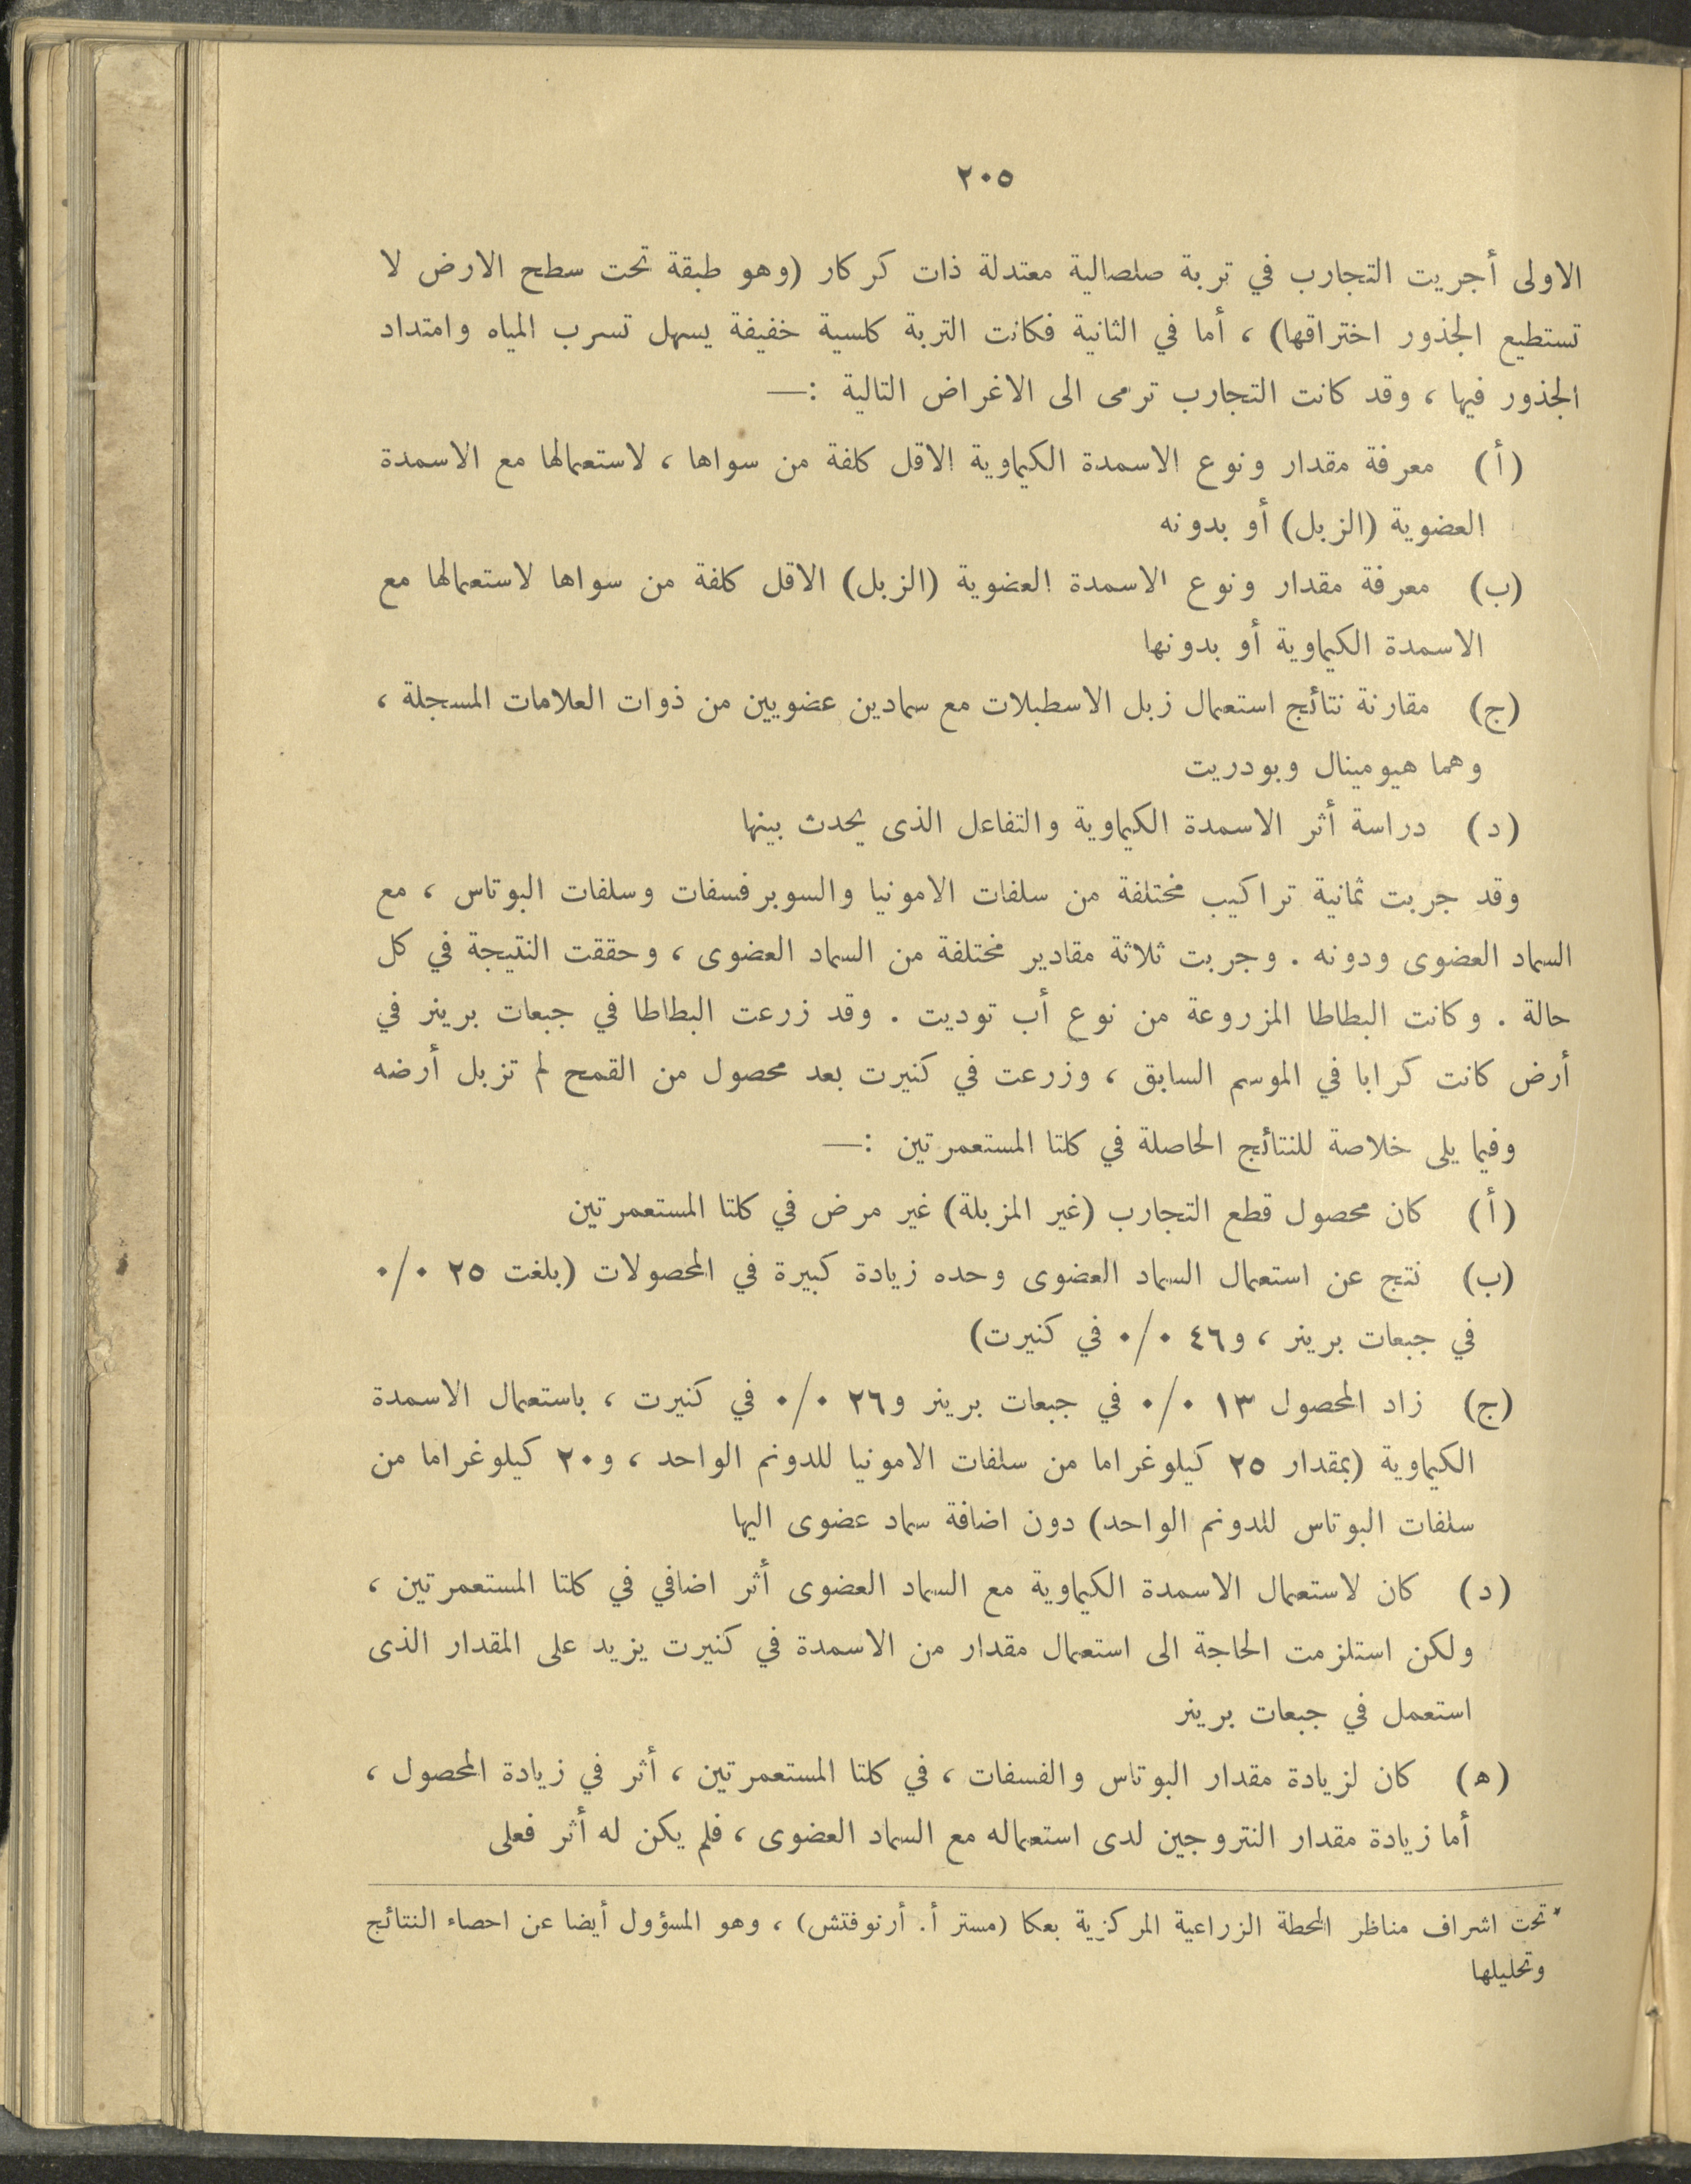 ٢٠٥
الاولى أجريت التجارب في تربة صلصالية معتدلة ذات كركار (وهو طبقة تحت سطح الارض لا
تستطيع الجذور اختراقها) ، أما في الثانية فكانت التربة كلسية خفيفة يسهل تسرب المياه وامتداد
الجذور فيها ، وقد كانت التجارب ترمى الى الاغراض التالية :—
(أ) معرفة مقدار ونوع الاسمدة الكيماوية الاقل كلفة من سواها ، لاستعمالها مع الاسمدة
العضوية (الزبل) أو بدونه
(ب) معرفة مقدار ونوع الاسمدة العضوية (الزبل) الاقل كلفة من سواها لاستعمالها مع
الاسمدة الكيماوية أو بدونها
(ج) مقارنة نتائج استعمال زبل الاسطبلات مع سمادين عضويين من ذوات العلامات المسجلة ،
وهما هيومينال وبودريت
(د) دراسة أثر الاسمدة الكيماوية والتفاعل الذى يحدث بينها
وقد جربت ثمانية تراكيب مختلفة من سلفات الامونيا والسوبرفسفات وسلفات البوتاس ، مع
السماد العضوى ودونه . وجربت ثلاثة مقادير مختلفة من السماد العضوى ، وحققت النتيجة في كل
حالة . وكانت البطاطا المزروعة من نوع أب توديت . وقد زرعت البطاطا في جبعات برينر في
أرض كانت كرابا في الموسم السابق ، وزرعت في كنيرت بعد محصول من القمح لم تزبل أرضه
وفيما يلى خلاصة للنتائج الحاصلة في كلتا المستعمرتين :—
(أ) كان محصول قطع التجارب (غير المزبلة) غير مرض في كلتا المستعمرتين
(ب) نتج عن استعمال السماد العضوى وحده زيادة كبيرة في المحصولات (بلغت ٢٥ ٠/٠
في جبعات برينر ، و٤٦ ٠/٠ في كنيرت)
(ج) زاد المحصول ١٣ ٠/٠ في جبعات برينر و٢٦ ٠/٠ في كنيرت ، باستعمال الاسمدة
الكيماوية (بمقدار ٢٥ كيلوغراما من سلفات الامونيا للدونم الواحد ، و٢٠ كيلوغراما من
سلفات البوتاس للدونم الواحد) دون اضافة سماد عضوى اليها
(د) كان لاستعمال الاسمدة الكيماوية مع السماد العضوى أثر اضافي في كلتا المستعمرتين ،
ولكن استلزمت الحاجة الى استعمال مقدار من الاسمدة في كنيرت يزيد على المقدار الذى
استعمل في جبعات برينر
(ه) كان لزيادة مقدار البوتاس والفسفات ، في كلتا المستعمرتين ، أثر في زيادة المحصول ،
أما زيادة مقدار النتروجين لدى استعماله مع السماد العضوى ، فلم يكن له أثر فعلى
*تحت اشراف مناظر المحطة الزراعية المركزية بعكا (مستر أ. أرنوفتش) ، وهو المسؤول أيضا عن احصاء النتائج
وتحليلها